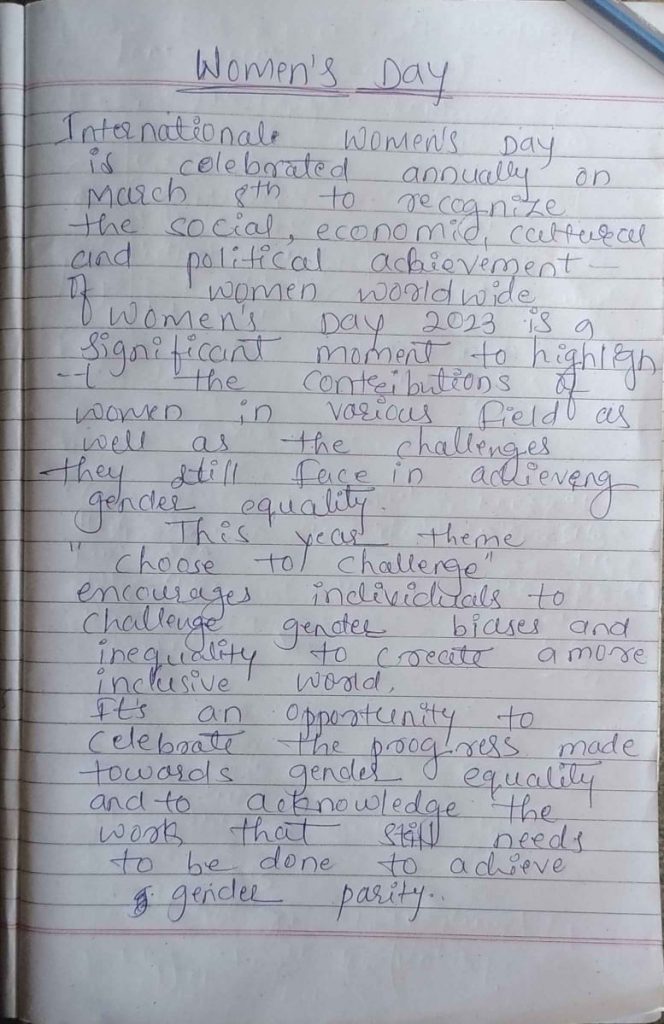 Women's Day
International Women's Day
is celebrated annually on
March 8th to recognize
the social, economic, cultural
and political achievement
of women worldwide
Women's Day 2023 is a
significant moment to highligh
-t the contributions of
women in various field as
well as the challenges
they still face in achieveng
gender equality.
This year theme
"choose to challenge"
encourages individuals to
challenge gender biases and
inequality to create a more
inclusive world.
It's an opportunity to
celebrate the progress made
towards gender equality
and to acknowledge the
work that still needs
to be done to achieve
gender parity..